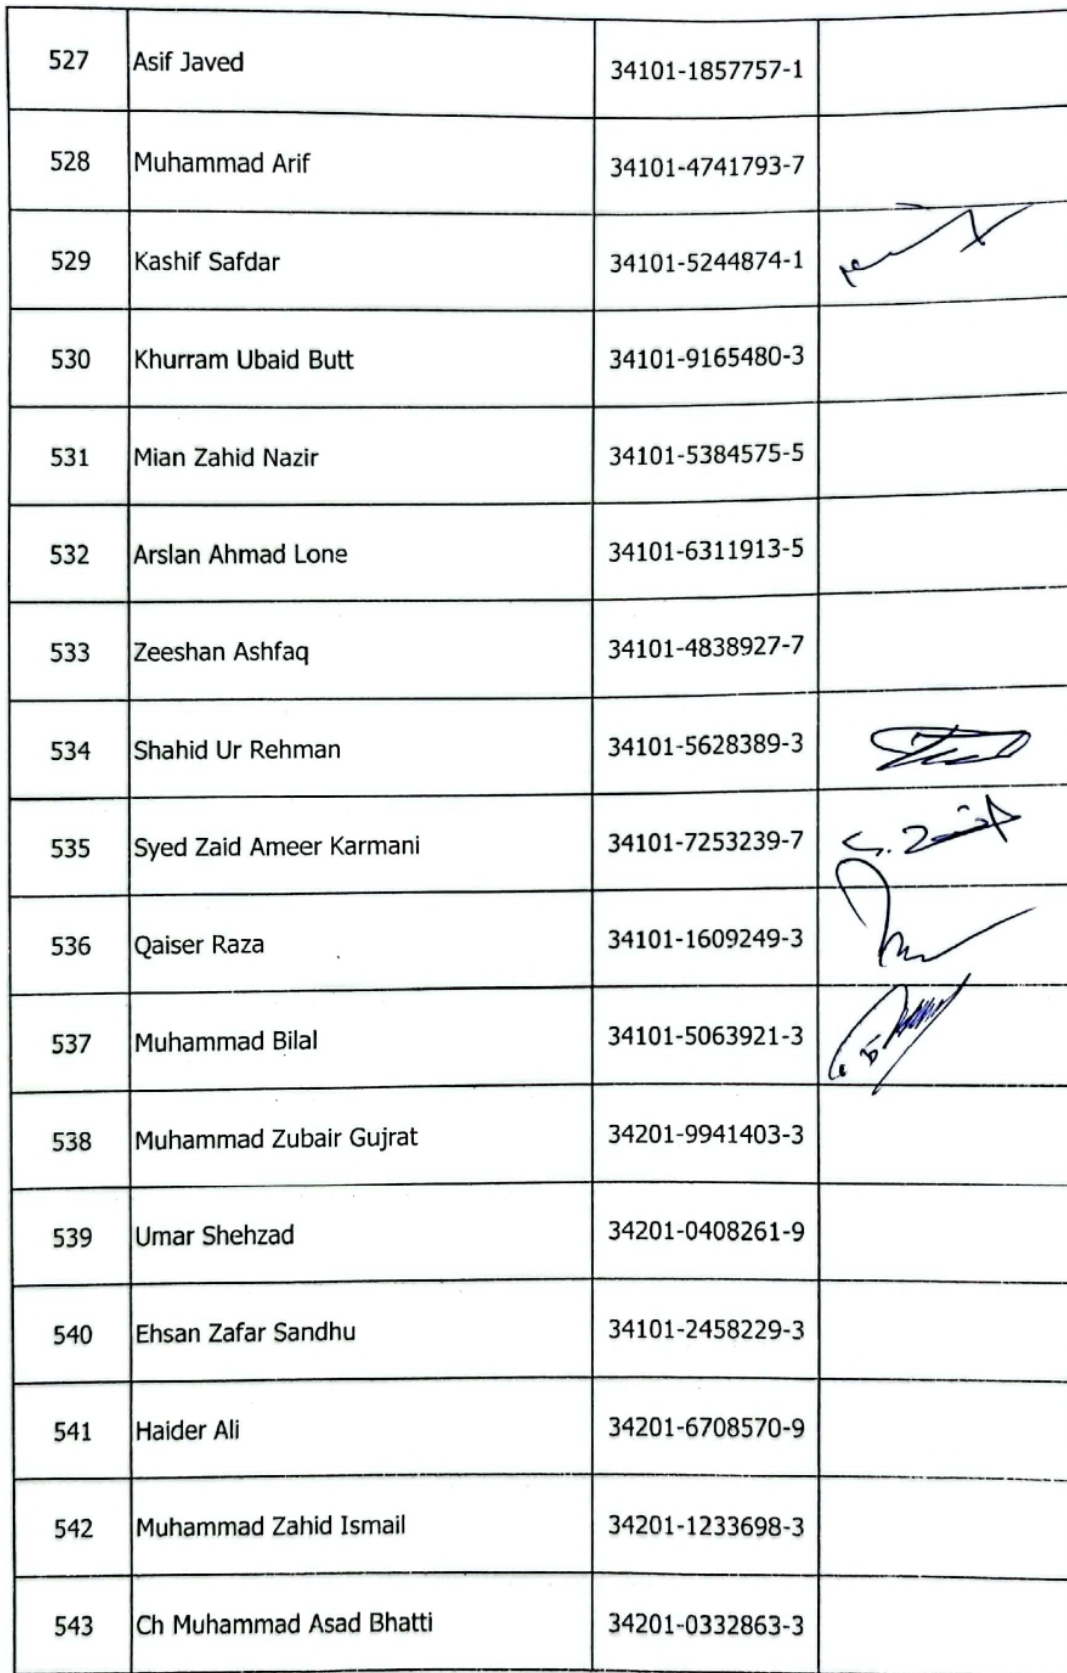 527 Asif Javed 34101-1857757-1
528 Muhammad Arif 34101-4741793-7
529 Kashif Safdar 34101-5244874-1
530 Khurram Ubaid Butt 34101-9165480-3
531 Mian Zahid Nazir 34101-5384575-5
532 Arslan Ahmad Lone 34101-6311913-5
533 Zeeshan Ashfaq 34101-4838927-7
534 Shahid Ur Rehman 34101-5628389-3
535 Syed Zaid Ameer Karmani 34101-7253239-7
536 Qaiser Raza 34101-1609249-3
537 Muhammad Bilal 34101-5063921-3
538 Muhammad Zubair Gujrat 34201-9941403-3
539 Umar Shehzad 34201-0408261-9
540 Ehsan Zafar Sandhu 34101-2458229-3
541 Haider Ali 34201-6708570-9
542 Muhammad Zahid Ismail 34201-1233698-3
543 Ch Muhammad Asad Bhatti 34201-0332863-3